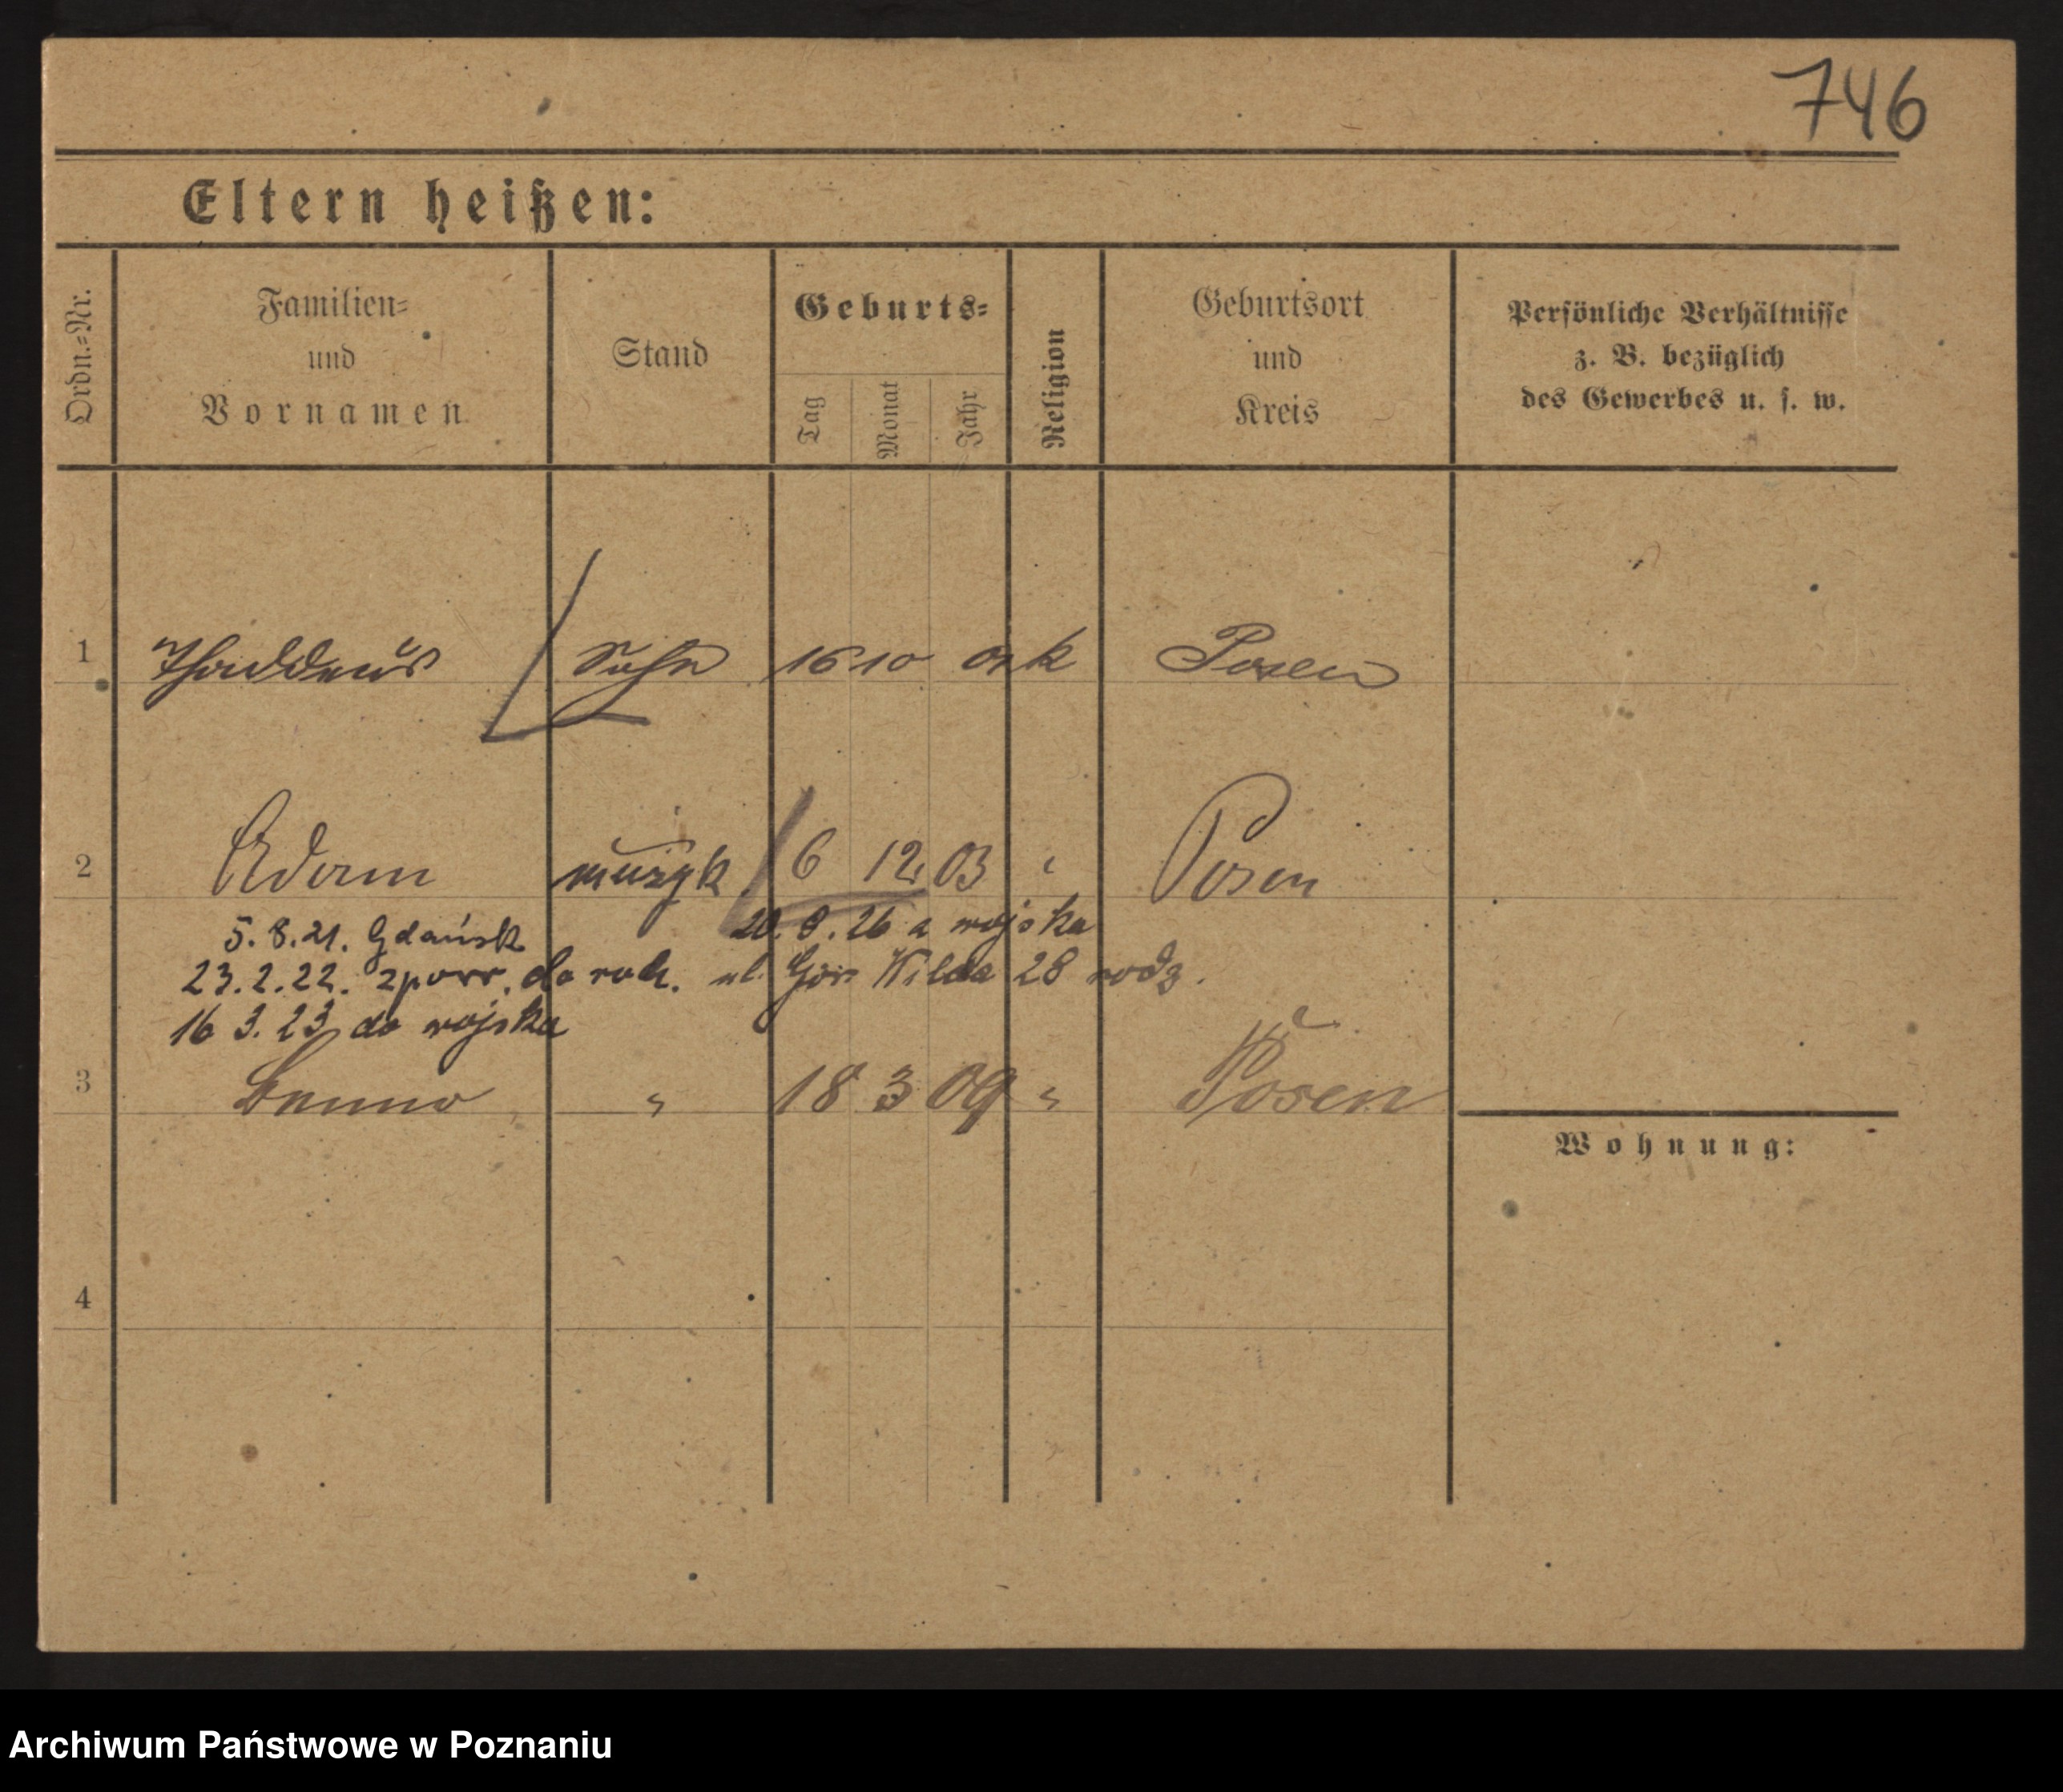 746
Eltern heißen:
Ordn.-Nr.
Familien-
und
Vornamen
Stand
Geburts-
Tag
Monat
Jahr
Religion
Geburtsort
und
Kreis
Persönliche Verhältnisse
z. B. bezüglich
des Gewerbes u. s. w.
1 Thaddeus Sohn 16 10 01 k Posen
2 Adam muzyk 6 12 03 " Posen
5.8.21. Gdańsk 20.8.26 z wojska
23.2.22. zpowr. do rodz. ul. Gór Wilda 28 rodz.
16 3.23 do wojska
3 Benno " 18 3 09 " Posen
Wohnung:
4
Archiwum Państwowe w Poznaniu